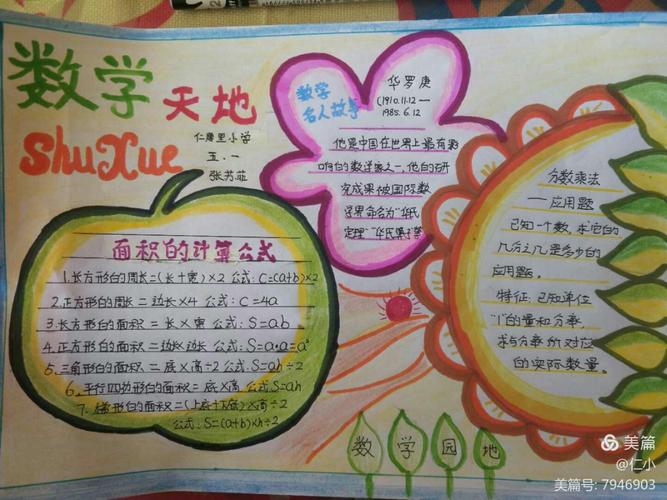 数学天地
ShuXue
仁康里小学
五.一
张芳菲
数学
名人故事
华罗庚
(1910.11.12—
1985.6.12
他是中国在世界上最有影
响的数学家之一,他的研
完成果被国际数
学界命名为"华氏
定理""华氏算子等
面积的计算公式
1.长方形的周长=(长+宽)×2 公式:C=(a+b)×2
2.正方形的周长=边长×4 公式:C=4a
3.长方形的面积=长×宽 公式:S=ab
4.正方形的面积=边长×边长 公式:S=a·a=a²
5.三角形的面积=底×高÷2 公式:S=ah÷2
6.平行四边形的面积=底×高 公式:S=ah
7.梯形的面积=(上底+下底)×高÷2
公式:S=(a+b)×h÷2
分数乘法
—应用题
已知一个数,求它的
几分之几是多少的
应用题。
特征:已知单位
"1"的量和分率,
求与分率所对应
的实际数量。
数学园地
美篇
@仁小
美篇号:7946903